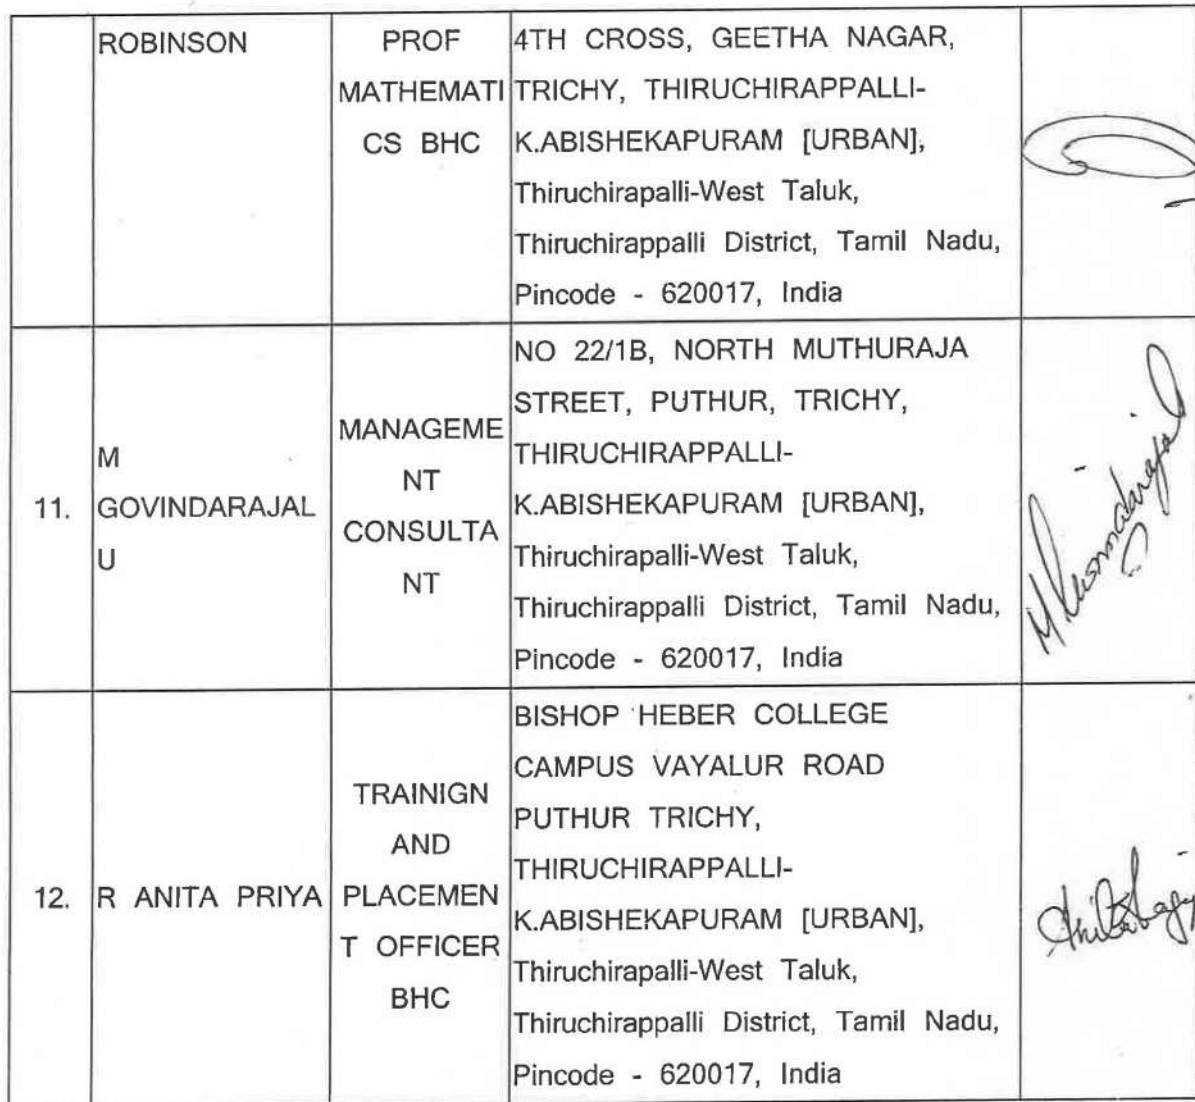 ROBINSON
PROF
MATHEMATI
CS BHC
4TH CROSS, GEETHA NAGAR,
TRICHY, THIRUCHIRAPPALLI-
K.ABISHEKAPURAM [URBAN],
Thiruchirapalli-West Taluk,
Thiruchirappalli District, Tamil Nadu,
Pincode - 620017, India
11.
M
GOVINDARAJAL
U
MANAGEME
NT
CONSULTA
NT
NO 22/1B, NORTH MUTHURAJA
STREET, PUTHUR, TRICHY,
THIRUCHIRAPPALLI-
K.ABISHEKAPURAM [URBAN],
Thiruchirapalli-West Taluk,
Thiruchirappalli District, Tamil Nadu,
Pincode - 620017, India
12.
R ANITA PRIYA
TRAINIGN
AND
PLACEMEN
T OFFICER
BHC
BISHOP HEBER COLLEGE
CAMPUS VAYALUR ROAD
PUTHUR TRICHY,
THIRUCHIRAPPALLI-
K.ABISHEKAPURAM [URBAN],
Thiruchirapalli-West Taluk,
Thiruchirappalli District, Tamil Nadu,
Pincode - 620017, India